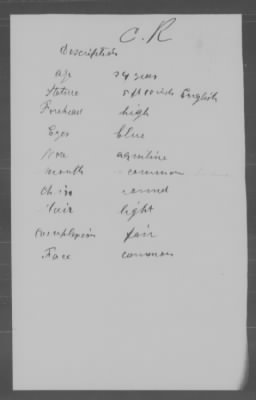 C. R
Description
age 29 years
Stature 5 ft inches English
Forehead high
Eyes blue
Nose aquiline
Mouth common
Chin round
Hair light
Complexion fair
Face common